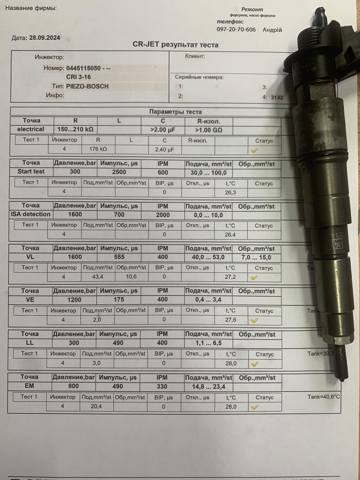 Название фирмы:
Ремонт
форсунок, насос-форсунок
телефон:
097-20-70-606 Андрій
Дата: 28.09.2024
CR-JET результат теста
Инжектор:
Номер: 0445115050 - --
CRI 3-16
Тип: PIEZO-BOSCH
Инфо:
Серийные номера:
1:
3:
2:
4: 3132
Параметры теста
Точка R L C R-изол. Статус
electrical 150...210 kΩ >2.00 µF >1.00 GΩ
Тест 1 Инжектор R L C R-изол. Статус
4 176 kΩ 2.40 µF
Точка Давление,bar Импульс, µs IPM Подача, mm³/st Обр.,mm³/st
Start test 300 2500 600 30,0 ... 100,0
Тест 1 Инжектор Под,mm³/st Обр,mm³/st BIP, µs Откл., µs t,°C Статус
4 0 26,3
Точка Давление,bar Импульс, µs IPM Подача, mm³/st Обр.,mm³/st
ISA detection 1600 700 2000 0,0 ... 10,0
Тест 1 Инжектор Под,mm³/st Обр,mm³/st BIP, µs Откл., µs t,°C Статус
4 0 26,4
Точка Давление,bar Импульс, µs IPM Подача, mm³/st Обр.,mm³/st
VL 1600 555 400 40,0 ... 53,0 7,0 ... 15,0
Тест 1 Инжектор Под,mm³/st Обр,mm³/st BIP, µs Откл., µs t,°C Статус
4 43,4 10,6 0 27,2
Точка Давление,bar Импульс, µs IPM Подача, mm³/st Обр.,mm³/st
VE 1200 175 400 0,4 ... 3,4
Тест 1 Инжектор Под,mm³/st Обр,mm³/st BIP, µs Откл., µs t,°C Статус
4 2,0 0 27,6
Точка Давление,bar Импульс, µs IPM Подача, mm³/st Обр.,mm³/st
LL 300 490 400 1,1 ... 6,5
Тест 1 Инжектор Под,mm³/st Обр,mm³/st BIP, µs Откл., µs t,°C Статус
4 3,0 0 28,0
Точка Давление,bar Импульс, µs IPM Подача, mm³/st Обр.,mm³/st
EM 800 490 330 14,8 ... 23,4
Тест 1 Инжектор Под,mm³/st Обр,mm³/st BIP, µs Откл., µs t,°C Статус Tank=40,6°C
4 20,4 0 28,0